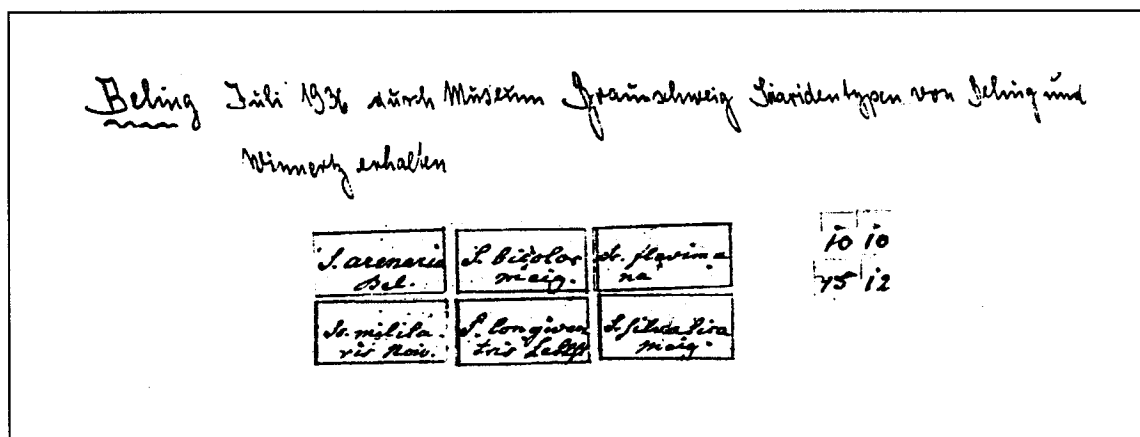 Beling Juli 1936 durch Museum Braunschweig Sciaridentypen von Beling und
Winnertz erhalten
S. arenaria
Bel.
S. bicolor
Meig.
Sc. flavima
na
Sc. milita-
ris Now.
S. longiven
tris Zett
S. silvatica
Meig.
10 10
75 12